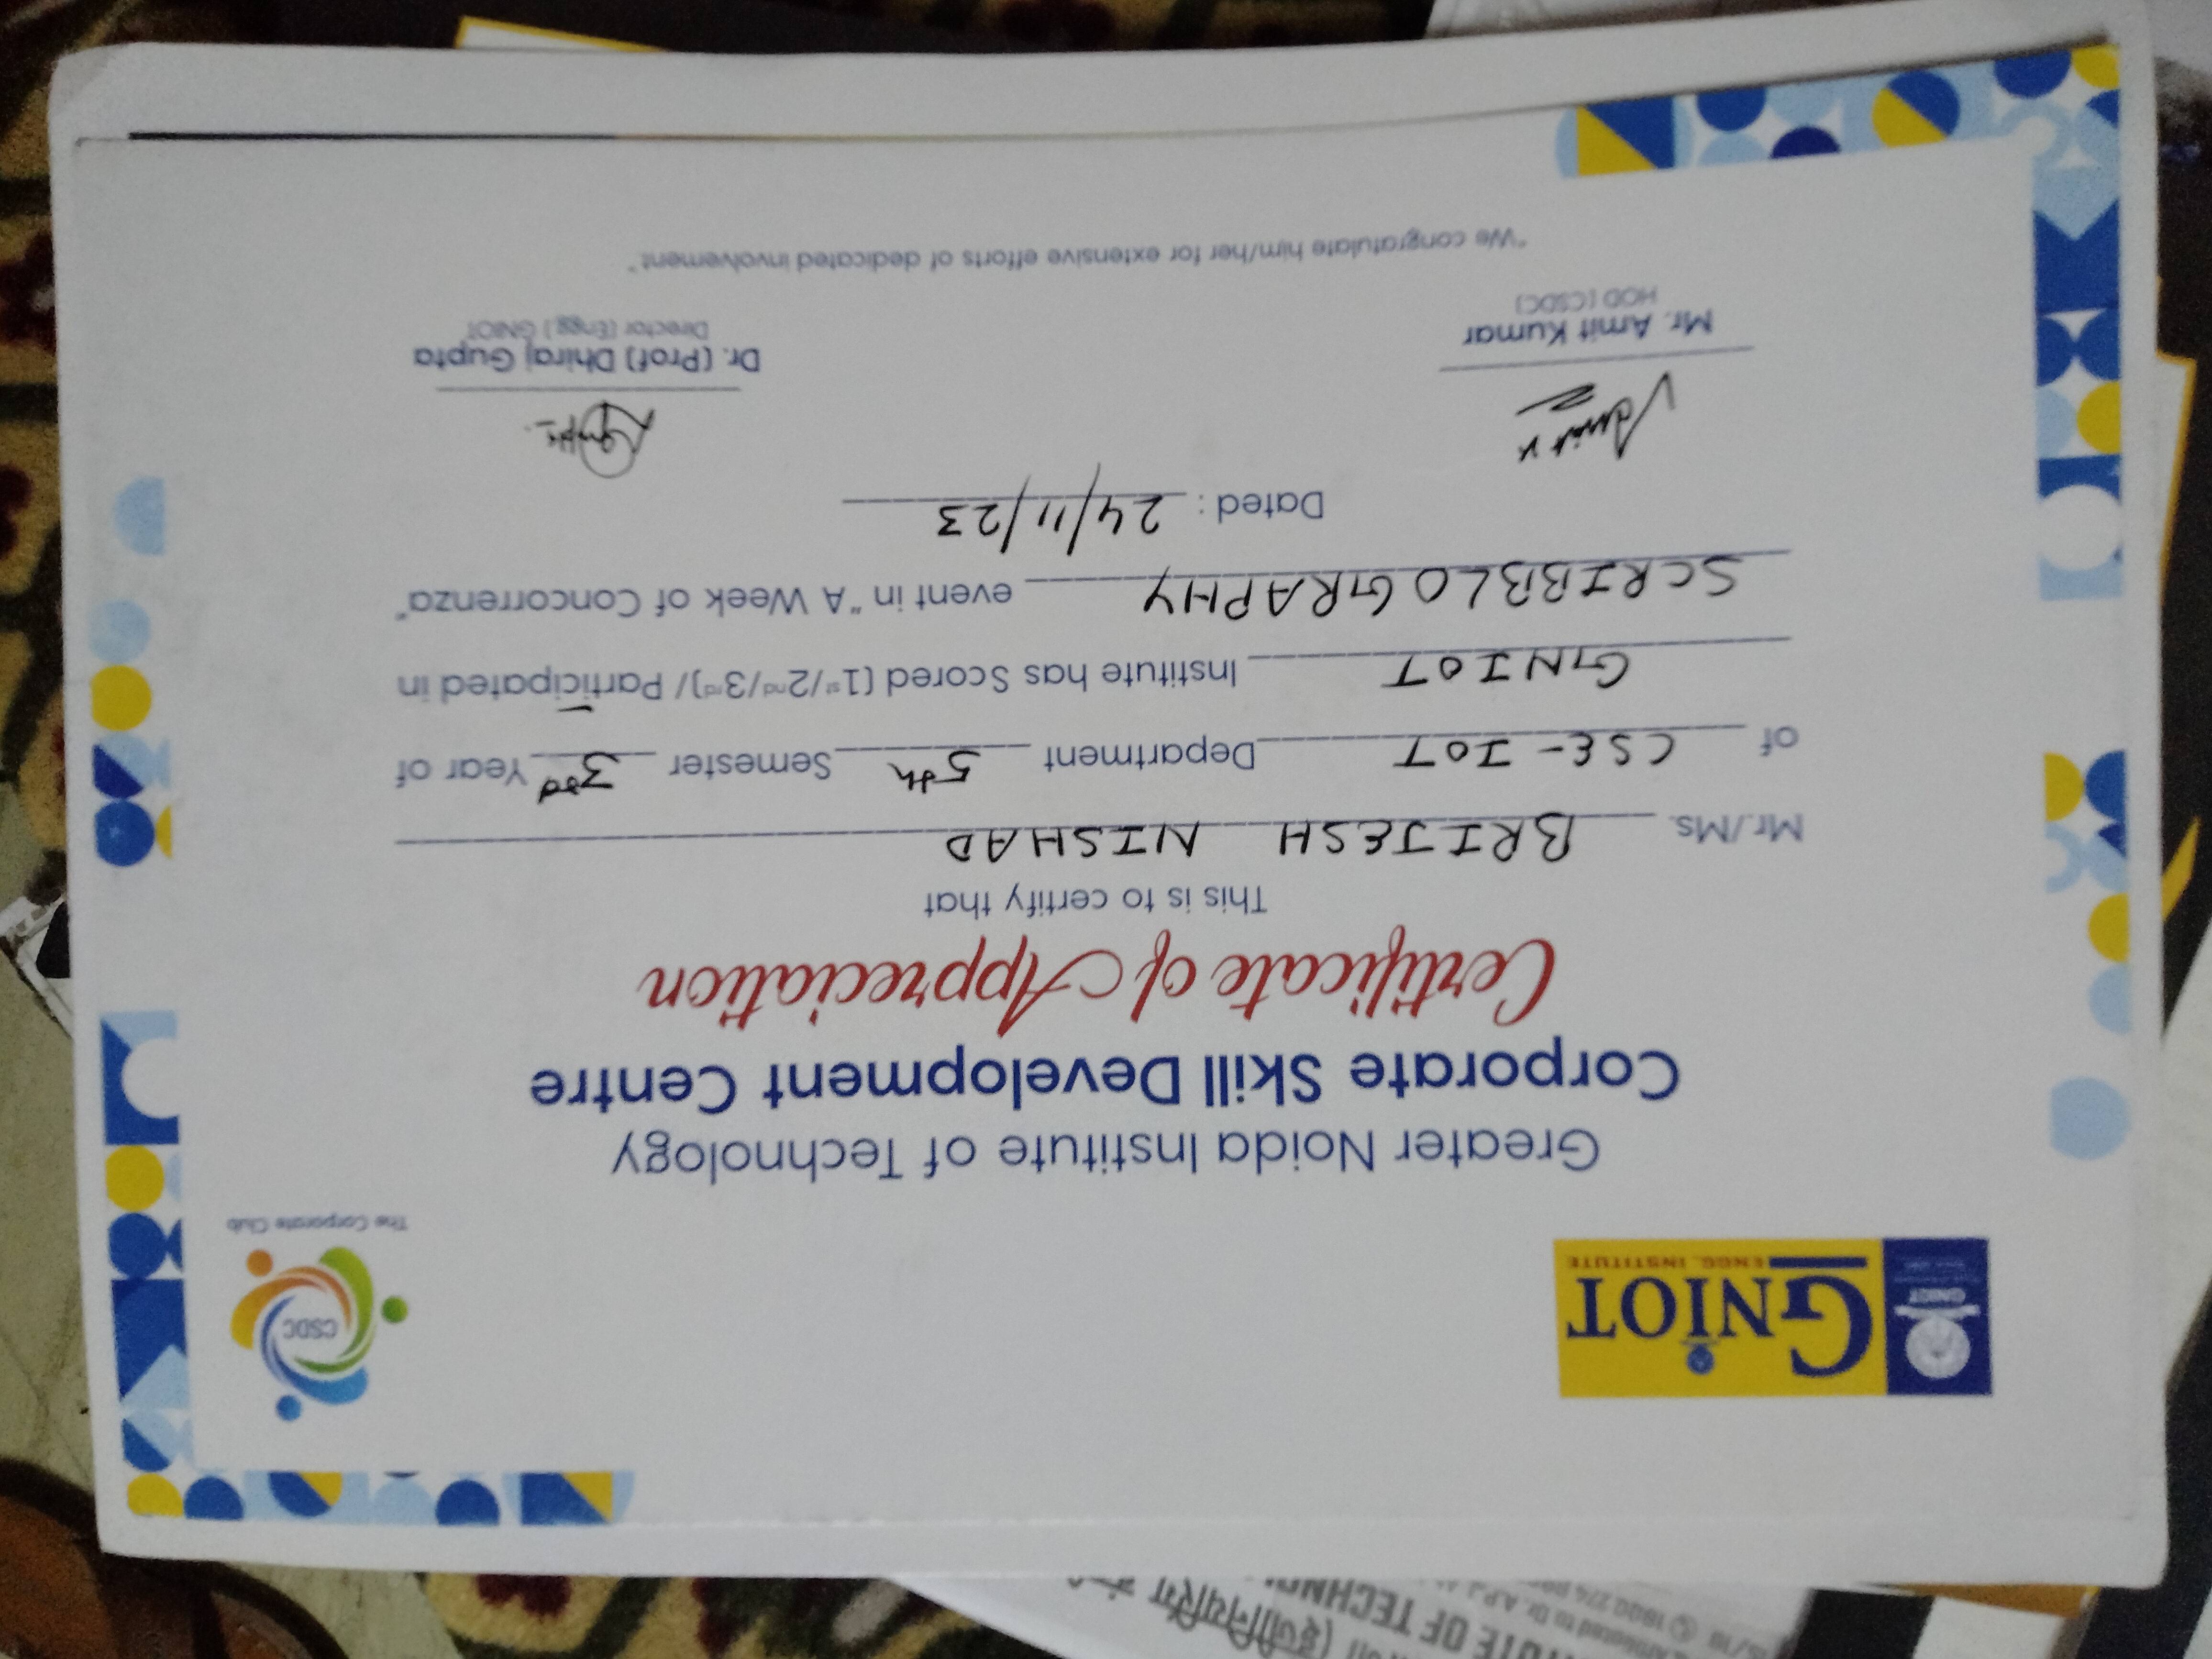 GNIOT
GNIOT
ENGG. INSTITUTE
CSDC
The Corporate Club
Greater Noida Institute of Technology
Corporate Skill Development Centre
Certificate of Appreciation
This is to certify that
Mr./Ms. BRIJESH NISHAD
of CSE-IOT Department 5th Semester 3rd Year of
GNIOT Institute has Scored (1st/2nd/3rd)/ Participated in
SCRIBBLOGRAPHY event in "A Week of Concorrenza"
Dated : 24/11/23
Mr. Amit Kumar
HOD (CSDC)
Dr. (Prof) Dhiraj Gupta
Director (Engg.) GNIOT
"We congratulate him/her for extensive efforts of dedicated involvement"
(इन्जीनियरिंग
OF TECHN